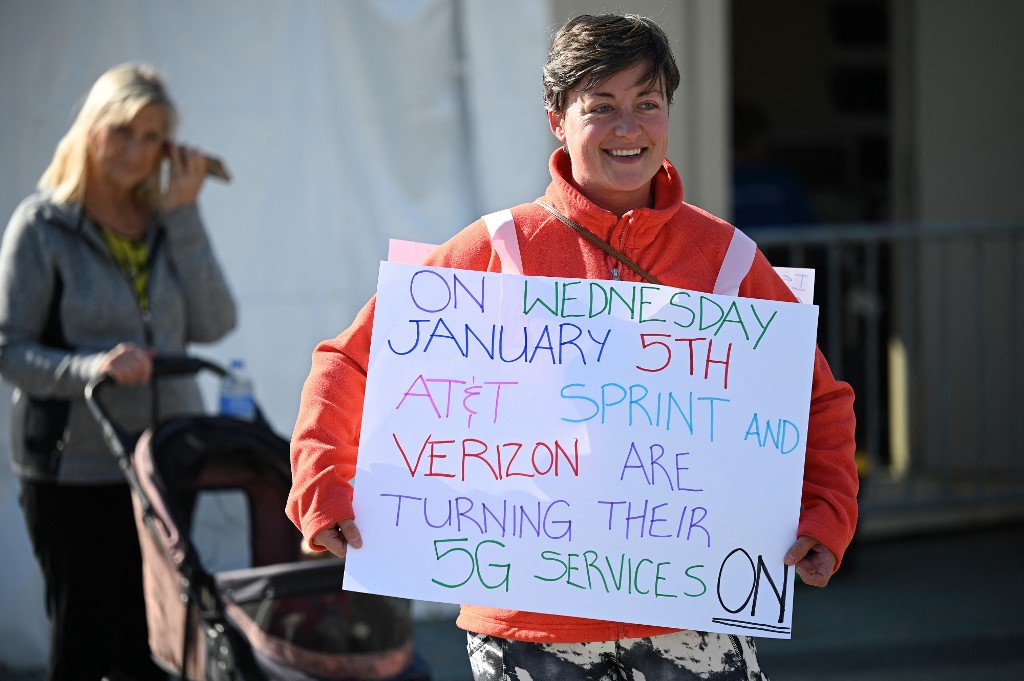 ON WEDNESDAY
JANUARY 5TH
AT&T SPRINT AND
VERIZON ARE
TURNING THEIR
5G SERVICES ON